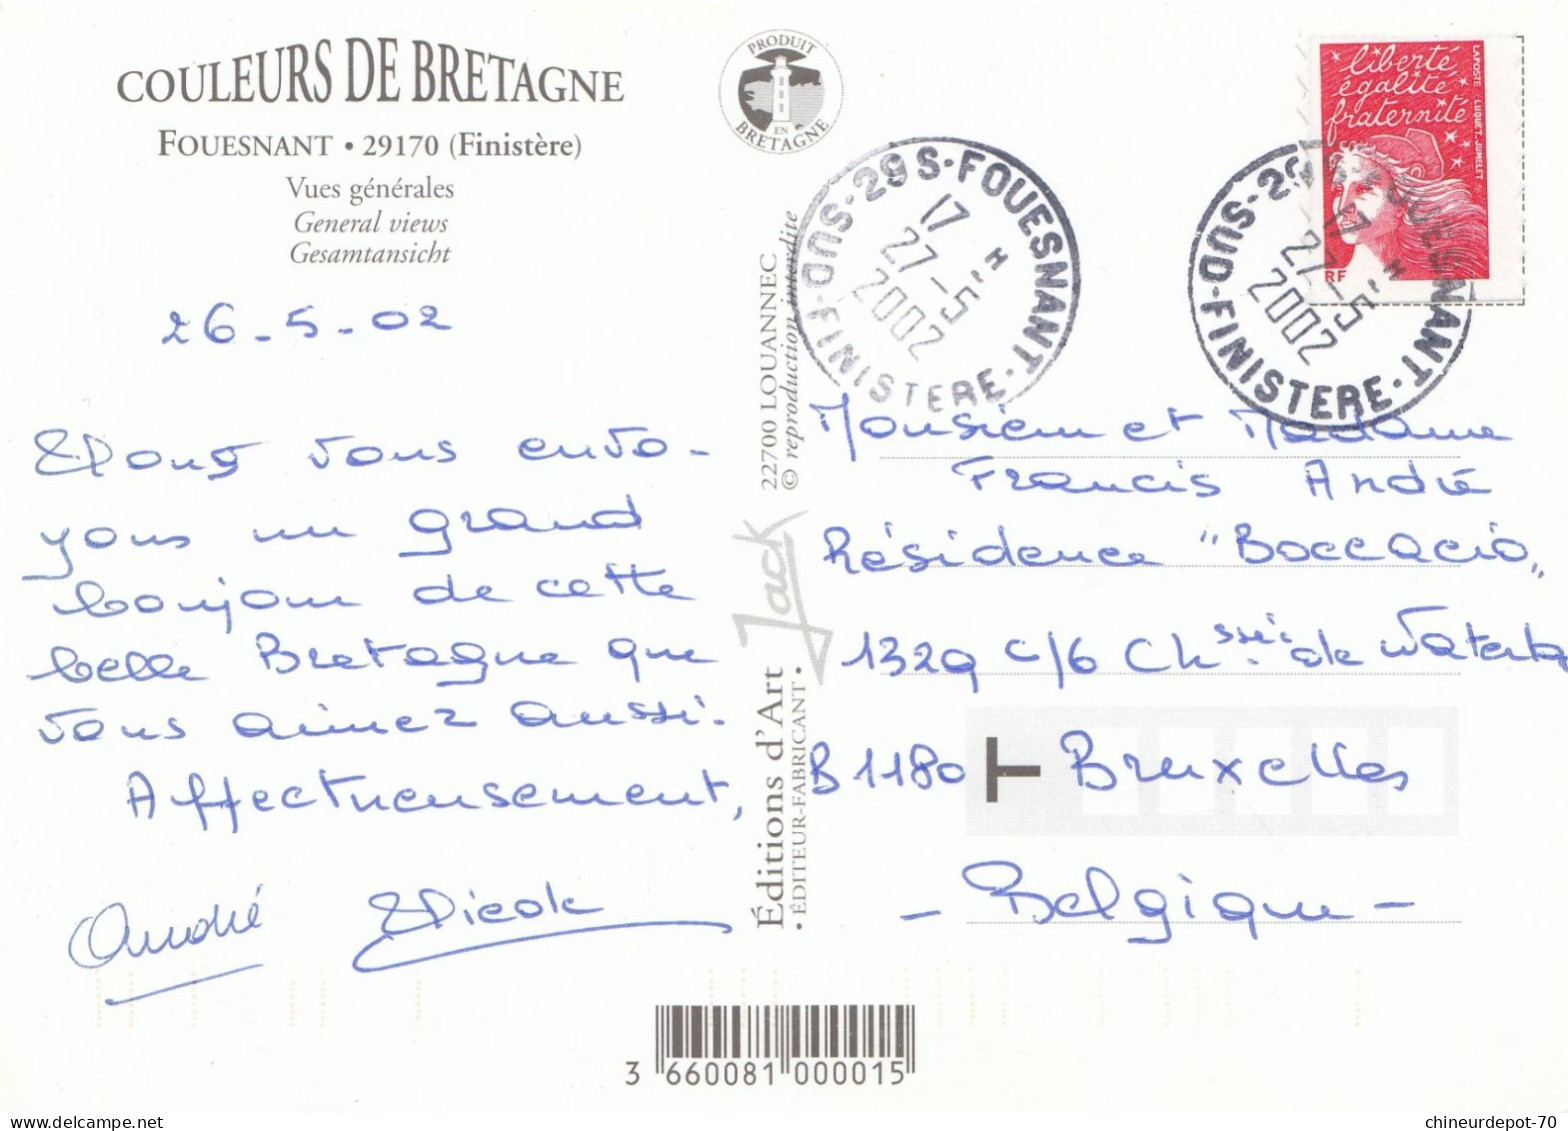 COULEURS DE BRETAGNE
FOUESNANT • 29170 (Finistère)
Vues générales
General views
Gesamtansicht
26-5-02
Nous vous envo-
yons un grand
bonjour de cette
belle Bretagne que
vous aimez aussi.
Affectueusement,
André Nicole
PRODUIT
EN
BRETAGNE
22700 LOUANNEC
© reproduction interdite
Jack
Éditions d'Art
• ÉDITEUR-FABRICANT •
29 S-FOUESNANT • SUD-FINISTERE •
17 H
27-5
2002
29 S-FOUESNANT • SUD-FINISTERE •
17 H
27-5
2002
liberté
égalité
fraternité
LAPOSTE LUQUET-JUMELET
RF
Monsieur et Madame
Francis André
Résidence "Boccacio"
1329 c/6 Chssée. de Waterlo
B 1180 T Bruxelles
- Belgique -
3 660081 000015
chineurdepot-70